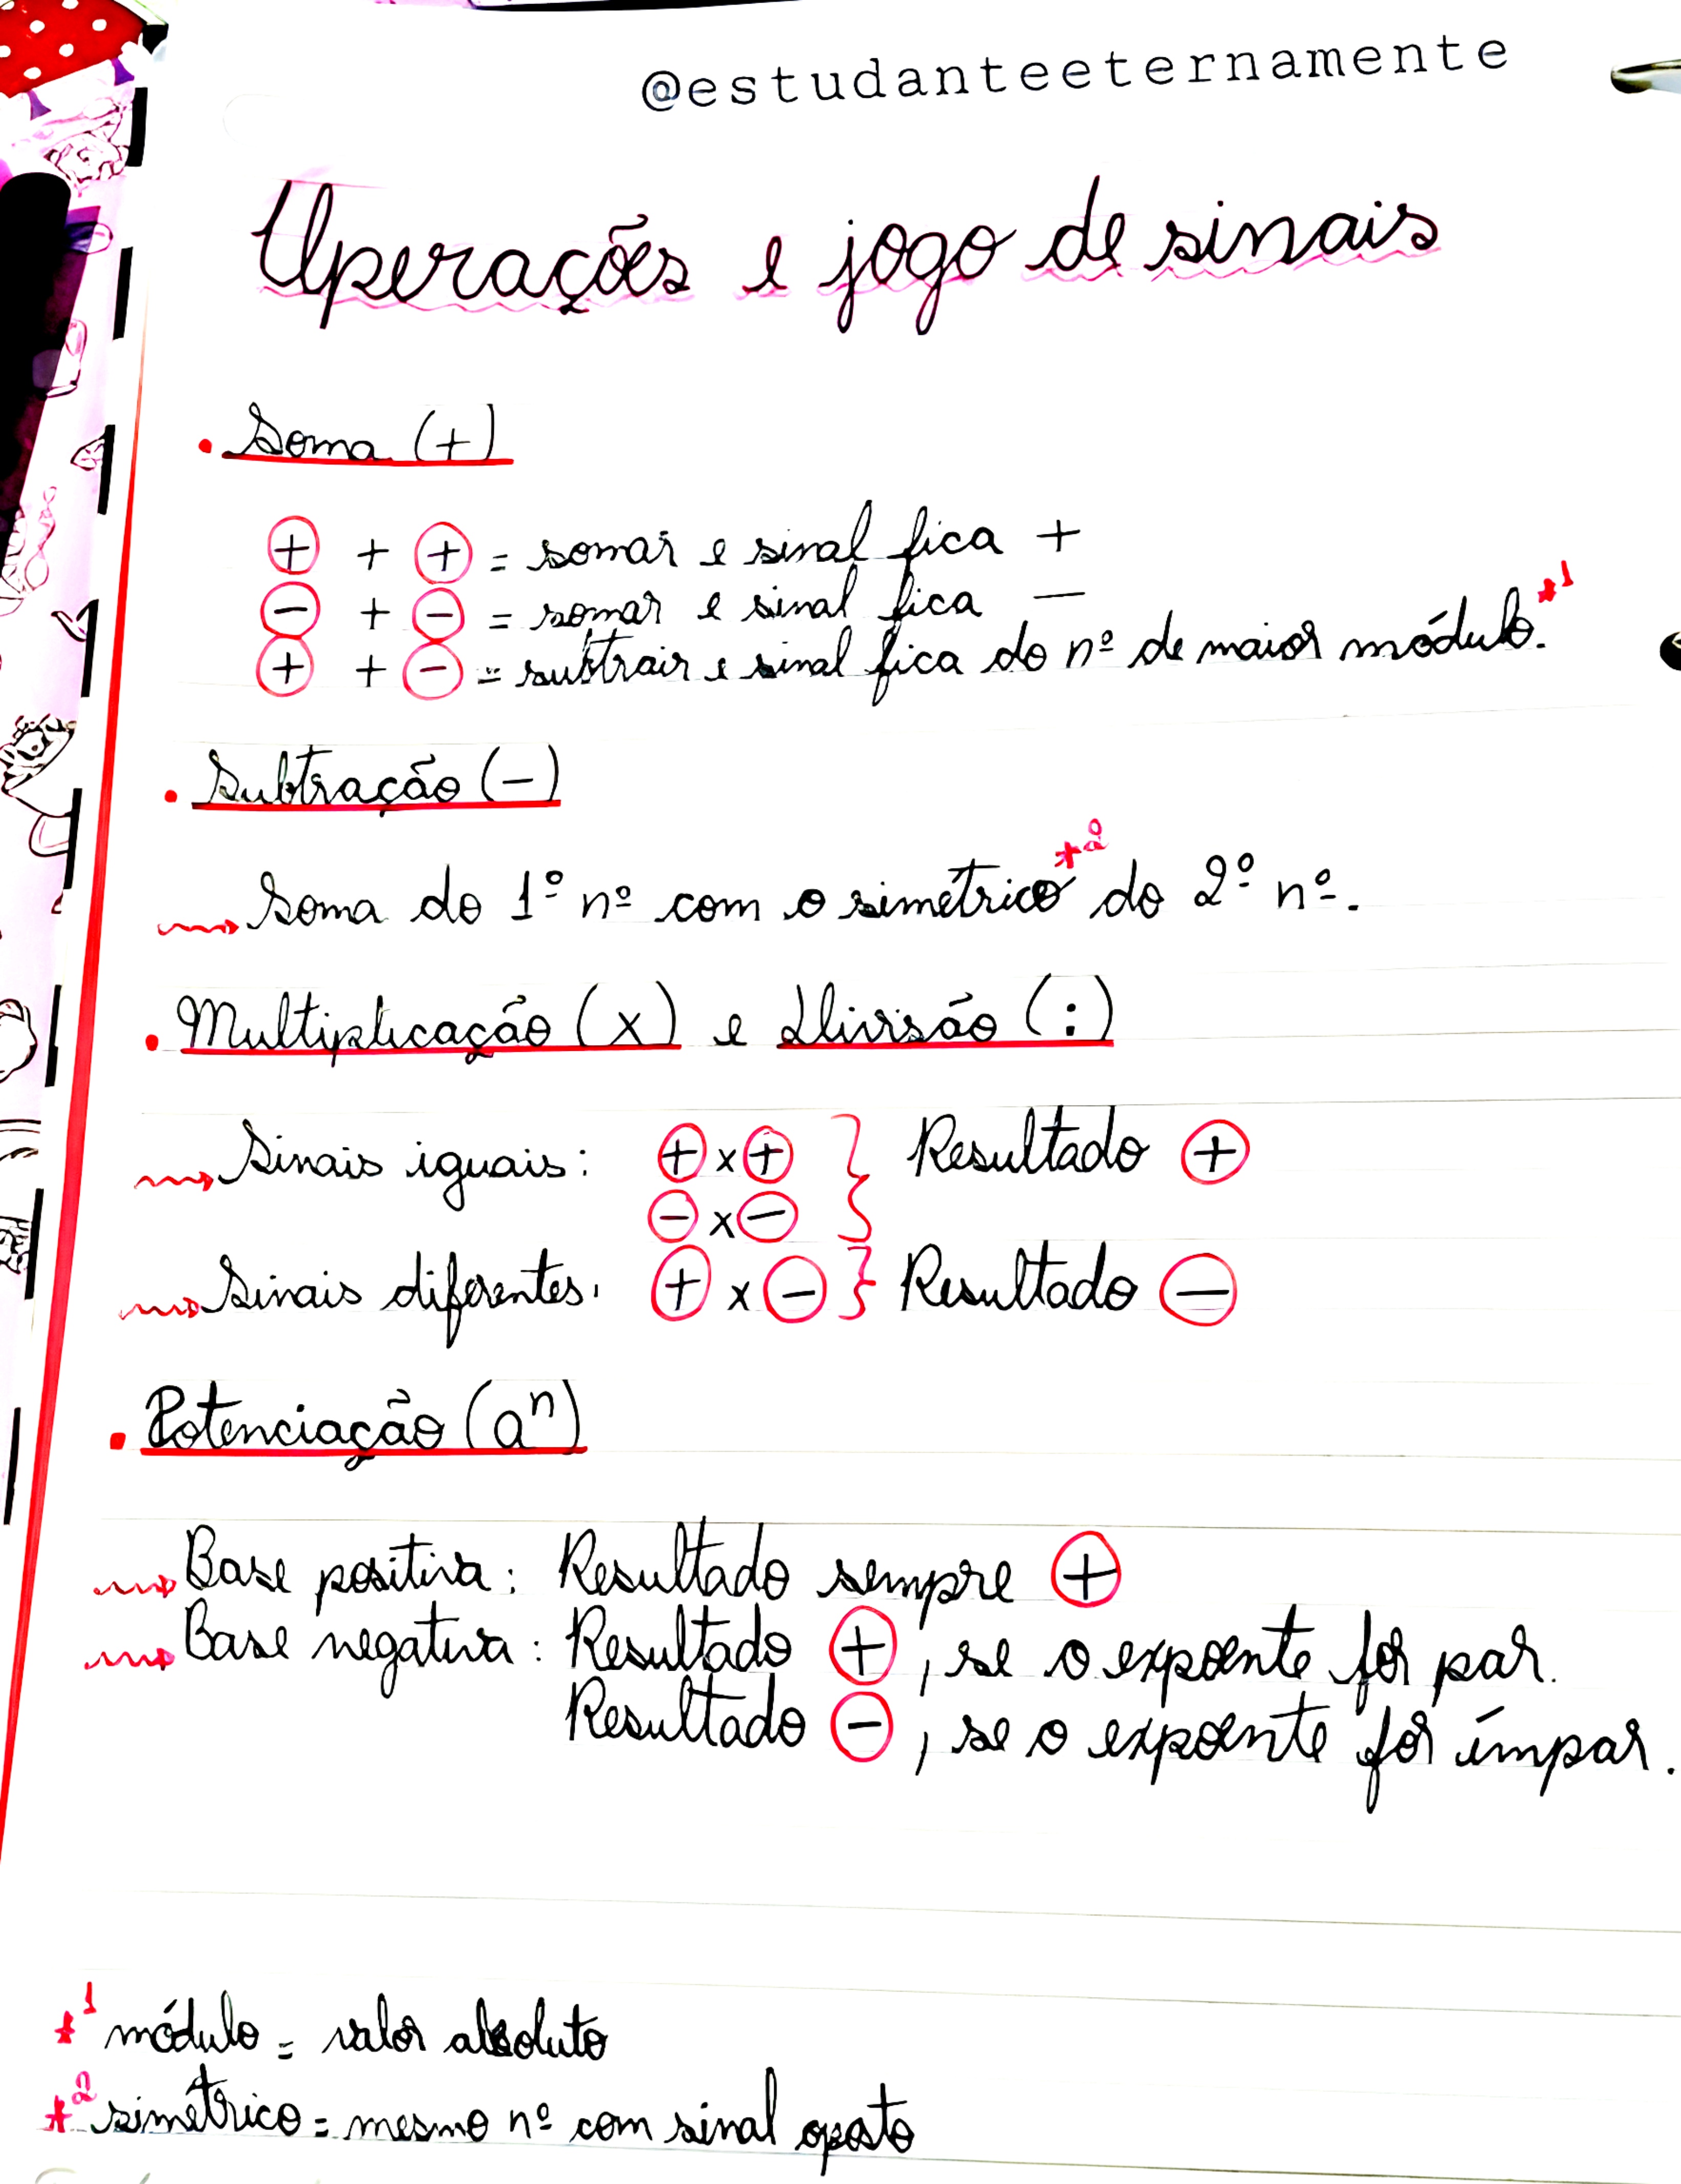 @estudanteeternamente
Operações e jogo de sinais
• Soma (+)
+ + + = somar e sinal fica +
- + - = somar e sinal fica -
+ + - = subtrair e sinal fica do nº de maior módulo. *1
• Subtração (-)
Soma do 1º nº com o simétrico*2 do 2º nº.
• Multiplicação (x) e Divisão (:)
Sinais iguais: + x + } Resultado +
- x -
Sinais diferentes: + x - } Resultado -
• Potenciação (aⁿ)
Base positiva: Resultado sempre +
Base negativa: Resultado +, se o expoente for par.
Resultado -, se o expoente for ímpar.
*1 módulo = valor absoluto
*2 simétrico = mesmo nº com sinal oposto